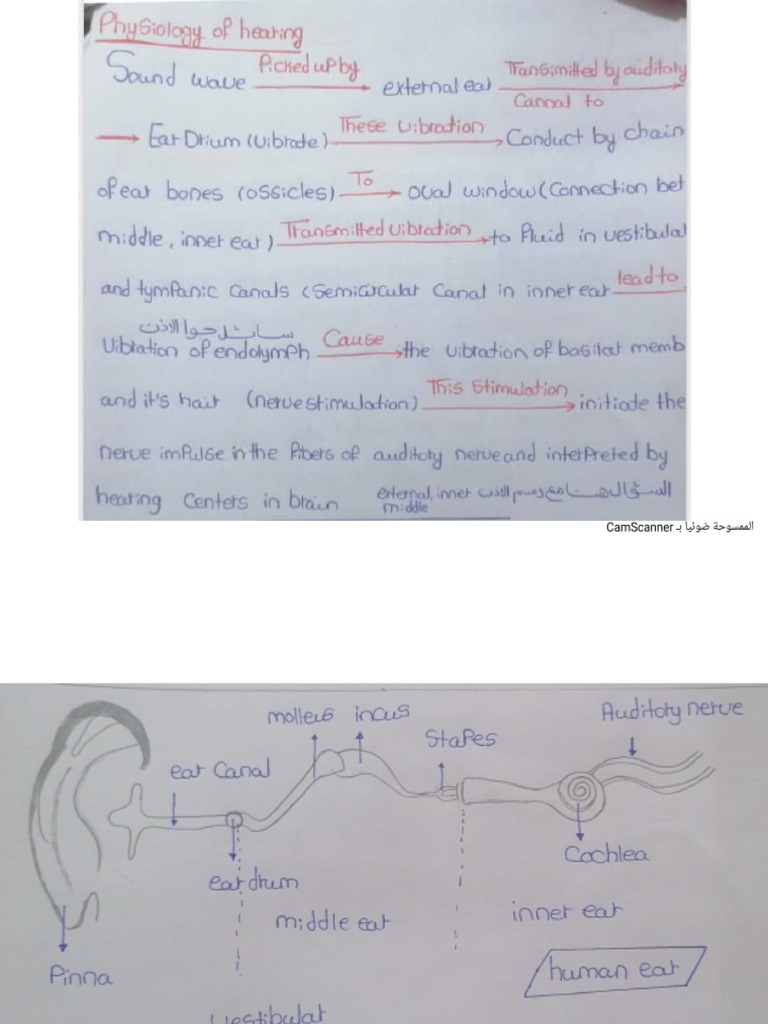 Physiology of hearing
Sound wave Picked up by external ear Transimitted by auditory Cannal to
Ear Drium (vibrate) These vibration Conduct by chain
of ear bones (ossicles) To oval window (Connection bet
middle, inner ear) Transmitted vibration to fluid in vestibular
and tymPanic canals (Semicircular Canal in inner ear lead to
سائل جوا الاذن
Vibration of endolymph Cause the vibration of basilar memb
and it's hair (nerve stimulation) This Stimulation initiate the
nerve imPulse in the fibers of auditory nerve and interPreted by
hearing Centers in brain external, inner middle السؤال هنا مع رسم الاذن
الممسوحة ضوئيا بـ CamScanner
molleus incus
Auditory nerve
StaPes
ear Canal
Cochlea
ear drum
middle ear
inner ear
Pinna
human ear
vestibular